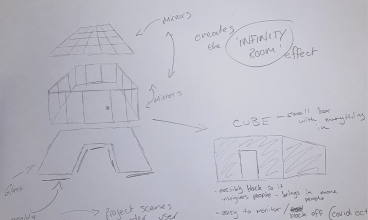 Mirrors
creates
the 'INFINITY
ROOM' effect
Mirrors
CUBE - small box
with everything
in
Glass
- possibly black so it
intrigues people - brings in more
people
- easy to monitor / block off (covid
project scenes
user